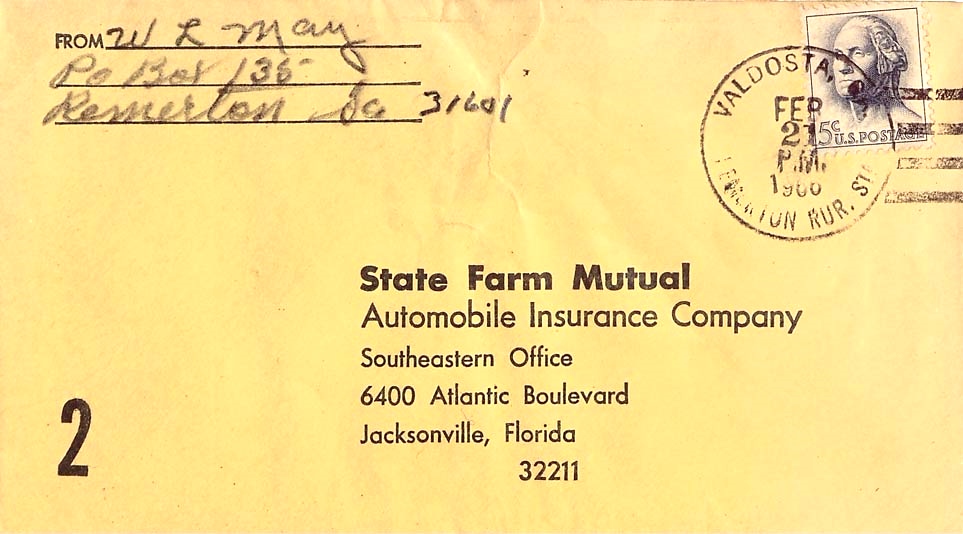 FROM W L May
Po Box 135
Remerton Ga 31601
VALDOSTA, GA.
FEB
21
P.M.
1966
REMERTON RUR. STA.
5c
U.S. POSTAGE
State Farm Mutual
Automobile Insurance Company
Southeastern Office
6400 Atlantic Boulevard
Jacksonville, Florida
32211
2